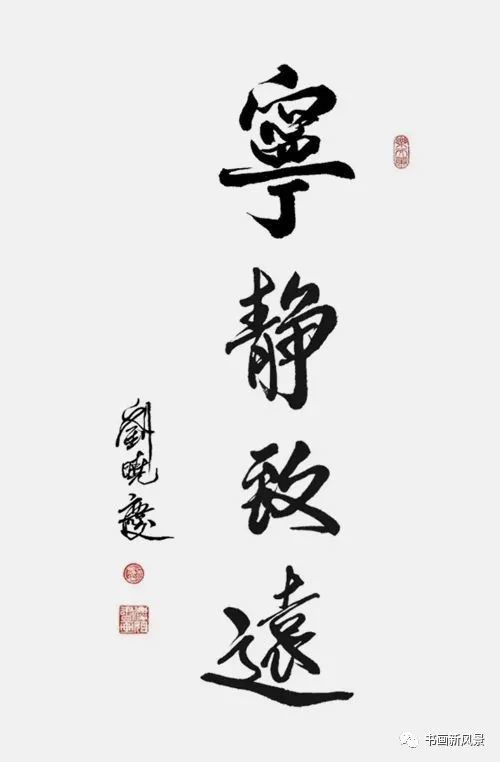 寧靜致遠
劉曉慶
书画新风景